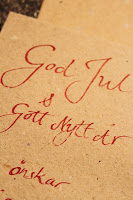 God Jul
&
Gott Nytt År
önskar